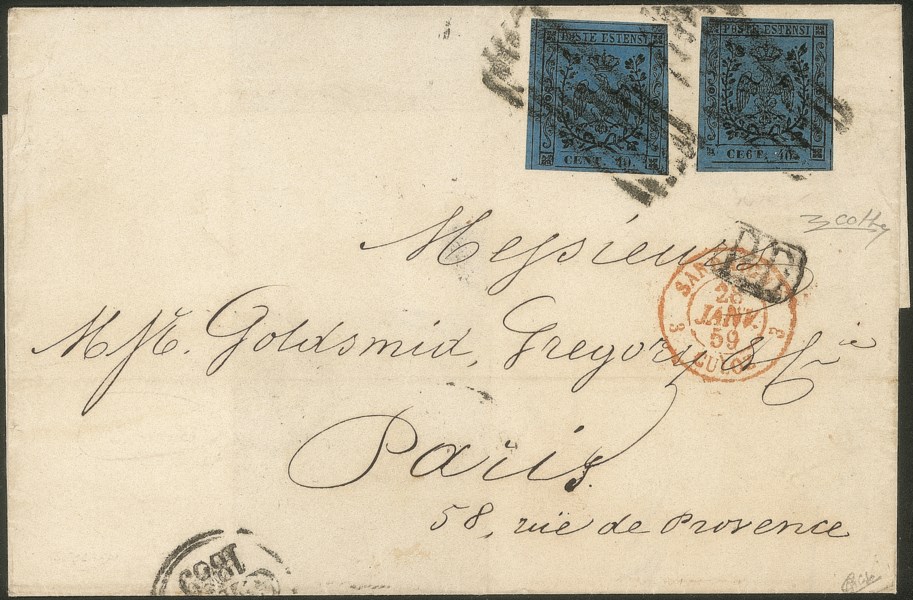 POSTE ESTENSI
CENT. 40.
POSTE ESTENSI
CE6T. 40.
Messieurs
Goldsmid, Gregory & Cie
Paris.
58, rue de Provence
28
JANV.
59
1859